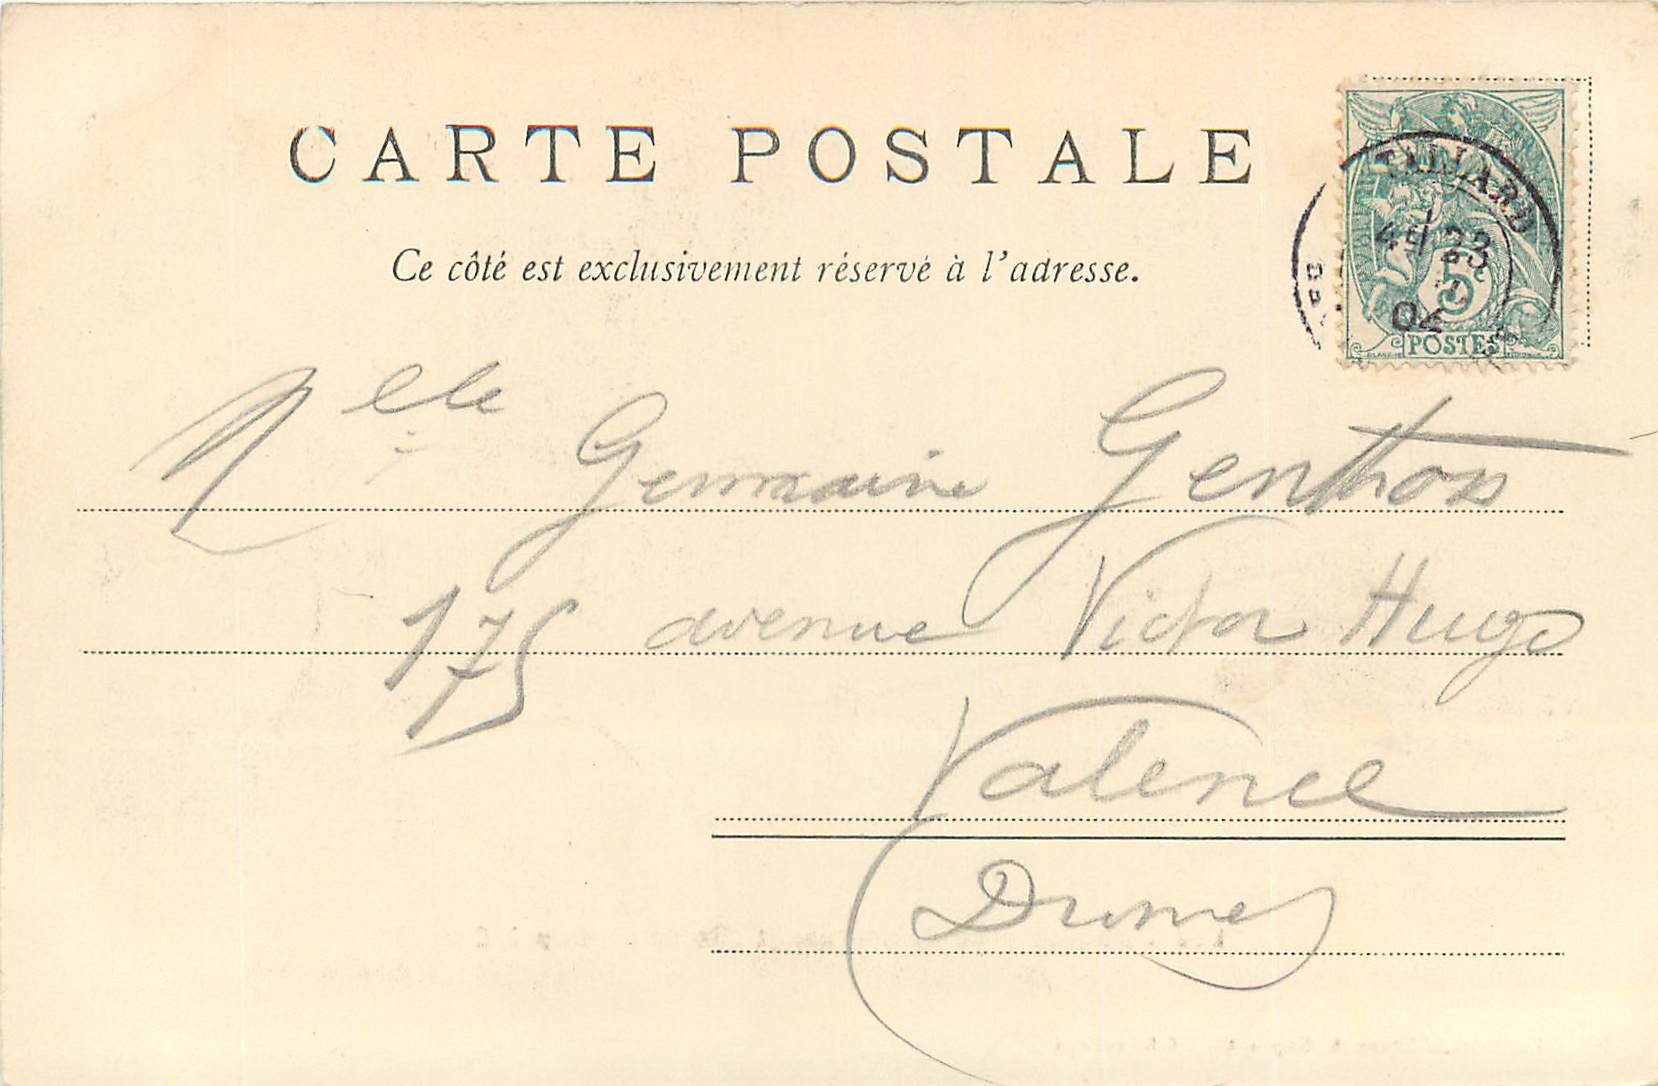 CARTE POSTALE
Ce côté est exclusivement réservé à l'adresse.
TALLARD
23
04
5c
POSTES
Mlle Germaine Genthon
175 avenue Victor Hugo
Valence
Drôme